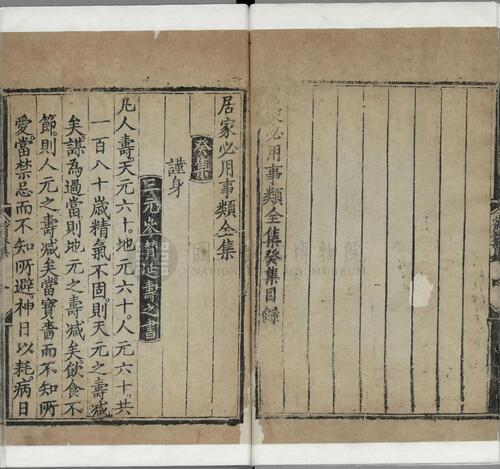 家必用事類全集癸集目錄
居家必用事類全集
癸集
謹身
三元參賛延壽之書
凡人壽天元六十地元六十人元六十共
一百八十歲精氣不固則天元之壽減
矣謀為過當則地元之壽減矣飲食不
節則人元之壽減矣當寶嗇而不知所
愛當禁忌而不知所避神日以耗病日